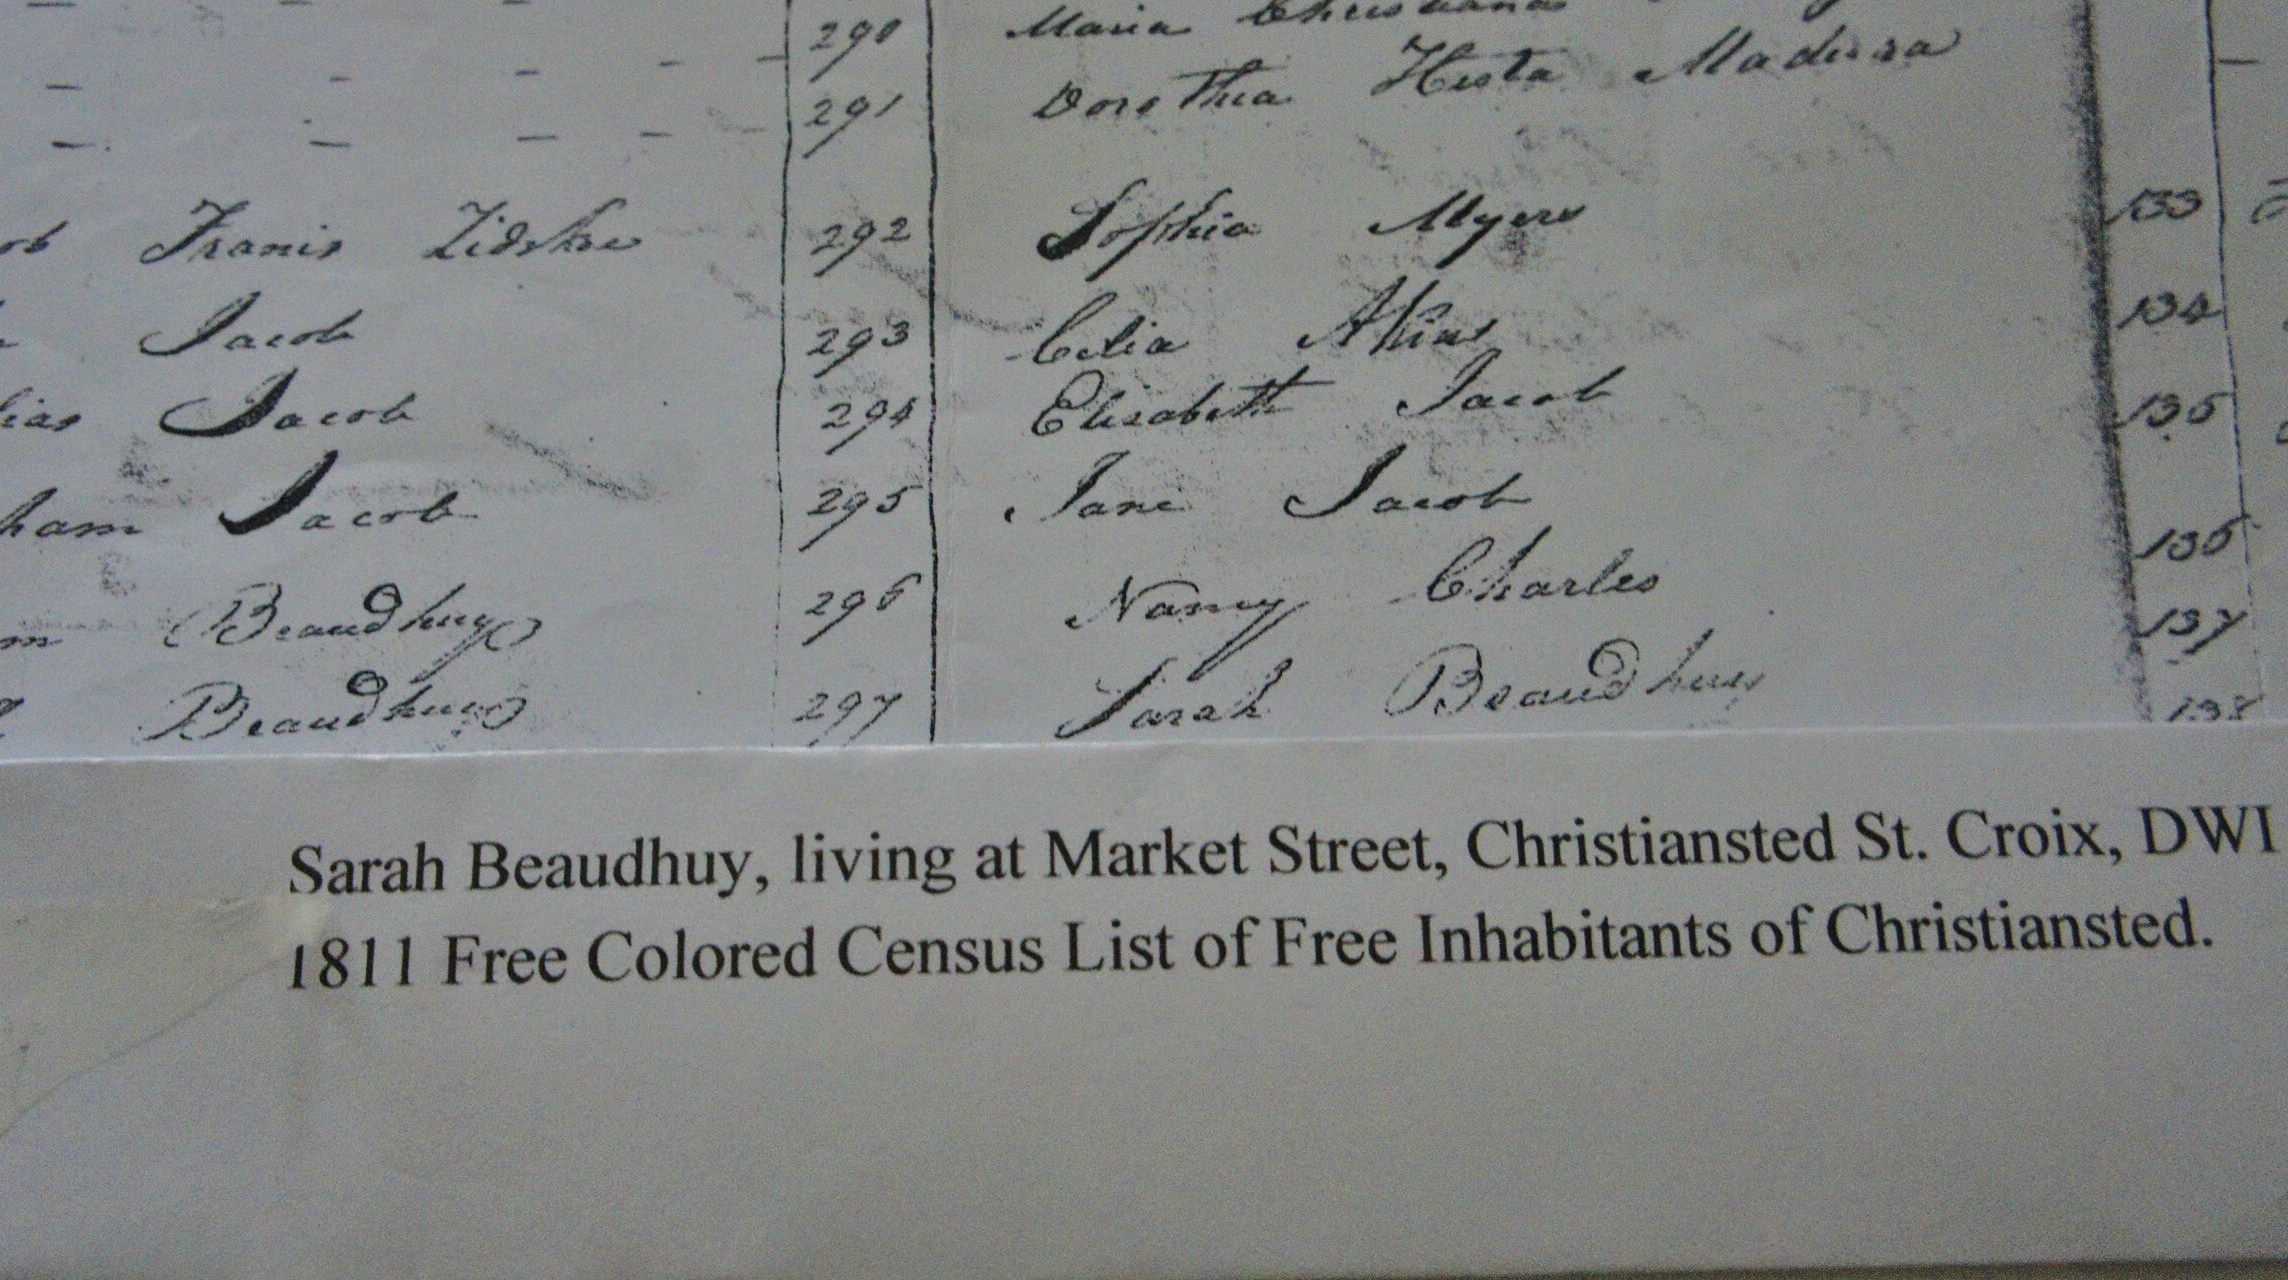 290 Maria
291 Dorothea Hesta Madura
Franis Zidske 292 Sophia Myers 133
Jacob 293 Celia Akins 134
Jacob 294 Elisabeth Jacob 135
ham Jacob 295 Jane Jacob 136
Beaudhuy 296 Nancy Charles 137
Beaudhuy 297 Sarah Beaudhuy 138
Sarah Beaudhuy, living at Market Street, Christiansted St. Croix, DWI
1811 Free Colored Census List of Free Inhabitants of Christiansted.